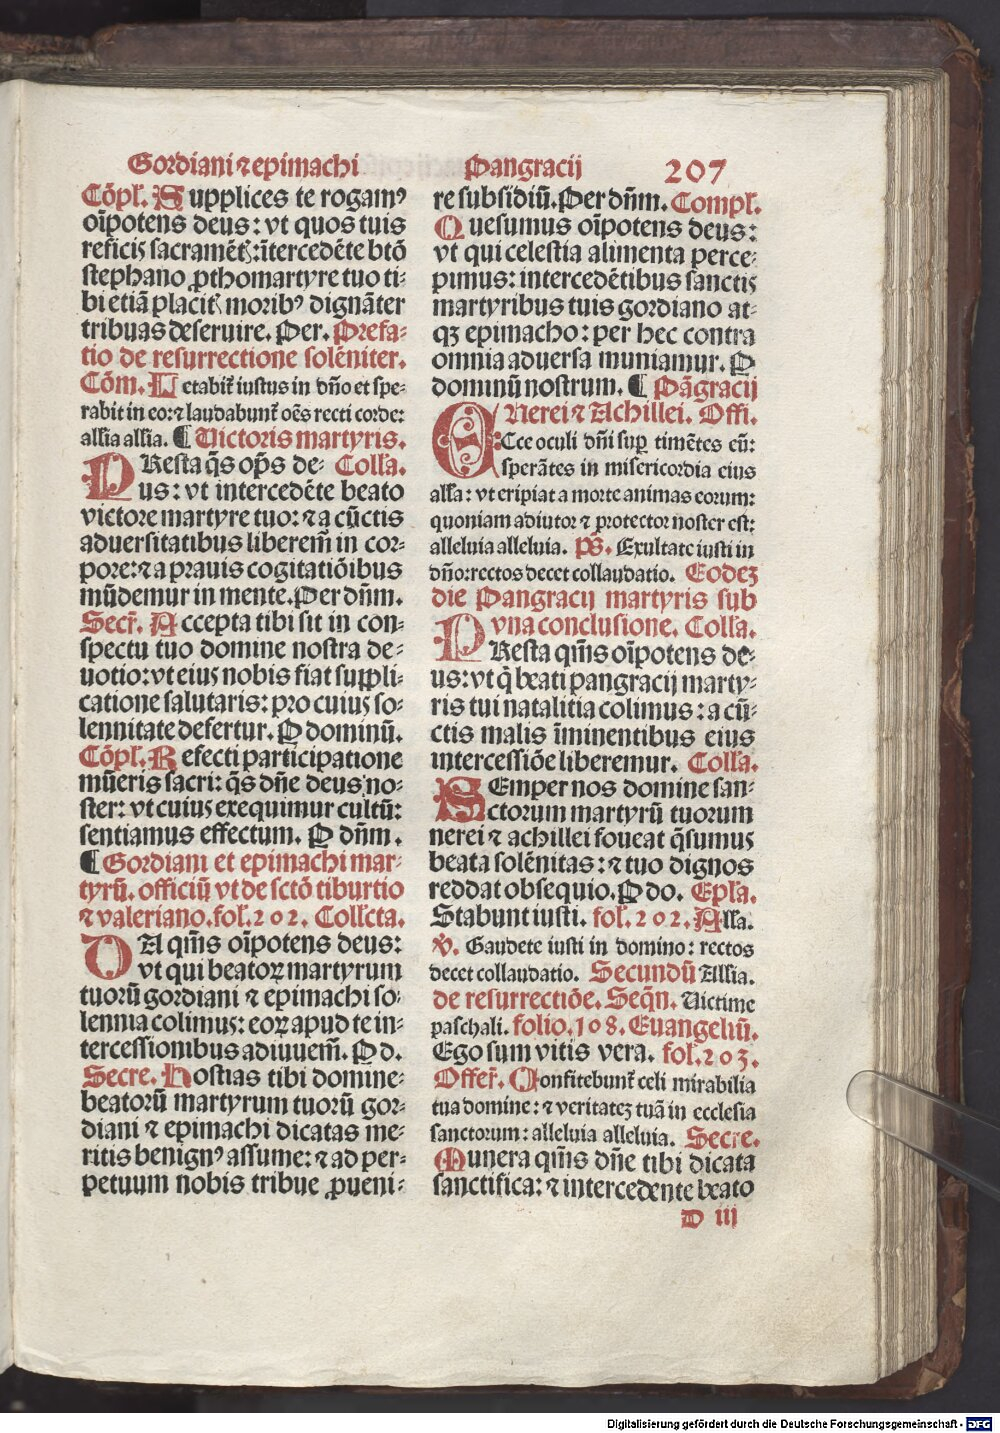 Gordiani ⁊ epimachi
Pangracij
207
Cōpl'. Supplices te rogamꝰ
oīpotens deus: vt quos tuis
reficis sacramētꝭ: ītercedēte btō
stephano ꝓthomartyre tuo ti⸗
bi etiā placitꝭ moribꝰ dignāter
tribuas deseruire. Per. Prefa⸗
tio de resurrectione solēniter.
Cōm. Letabit̄ iustus in dn̄o et spe⸗
rabit in eo: ⁊ laudabunt̄ oēs recti corde:
all'ia all'ia. ¶ Victoris martyris.
PResta q̄s op̄s de⸗ Coll'a.
us: vt intercedēte beato
victore martyre tuo: ⁊ a cūctis
aduersitatibus liberem̄ in cor⸗
pore: ⁊ a prauis cogitatiōibus
mūdemur in mente. Per dn̄m.
Secr̄. Accepta tibi sit in con⸗
spectu tuo domine nostra de⸗
uotio: vt eius nobis fiat suppli⸗
catione salutaris: pro cuius so⸗
lennitate defertur. P dominū.
Cōpl'. Refecti participatione
mūeris sacri: q̄s dn̄e deus no⸗
ster: vt cuius exequimur cultū:
sentiamus effectum. P dn̄m.
¶ Gordiani et epimachi mar⸗
tyrū. officiū vt de sctō tiburtio
⁊ valeriano. fol. 202. Coll'cta.
DA qm̄s oīpotens deus:
vt qui beatoꝝ martyrum
tuorū gordiani ⁊ epimachi so⸗
lennia colimus: eoꝝ apud te in⸗
tercessionibus adiuuem̄. P d.
Secre. Hostias tibi domine⸗
beatorū martyrum tuorū gor⸗
diani ⁊ epimachi dicatas me⸗
ritis benignꝰ assume: ⁊ ad per⸗
petuum nobis tribue ꝓueni⸗
re subsidiū. Per dn̄m. Compl'.
Quesumus oīpotens deus:
vt qui celestia alimenta perce⸗
pimus: intercedētibus sanctis
martyribus tuis gordiano at⸗
qꝫ epimacho: per hec contra
omnia aduersa muniamur. P
dominū nostrum. ¶ Pāgracij
Nerei ⁊ Achillei. Offi.
ECce oculi dn̄i suꝑ timētes eū:
sperātes in misericordia eius
all'a: vt eripiat a morte animas eorum:
quoniam adiutor ⁊ protector noster est:
alleluia alleluia. pS. Exultate iusti in
dn̄o: rectos decet collaudatio. Eodeꝫ
die Pangracij martyris sub
vna conclusione. Coll'a.
PResta qm̄s oīpotens de⸗
us: vt q̄ beati pangracij marty⸗
ris tui natalitia colimus: a cū⸗
ctis malis īminentibus eius
intercessiōe liberemur. Coll'a.
SEmper nos domine san⸗
ctorum martyrū tuorum
nerei ⁊ achillei foueat q̄sumus
beata solēnitas: ⁊ tuo dignos
reddat obsequio. P do. Epl'a.
Stabunt iusti. fol. 202. All'a.
V. Gaudete iusti in domino: rectos
decet collaudatio. Secundū All'ia.
de resurrectiōe. Seqn̄. Victime
paschali. folio. 108. Euangeliū.
Ego sum vitis vera. fol. 203.
Offer̄. Confitebunt̄ celi mirabilia
tua domine: ⁊ veritateꝫ tuā in ecclesia
sanctorum: alleluia alleluia. Secre.
Munera qm̄s dn̄e tibi dicata
sanctifica: ⁊ intercedente beato
D iii
Digitalisierung gefördert durch die Deutsche Forschungsgemeinschaft - DFG